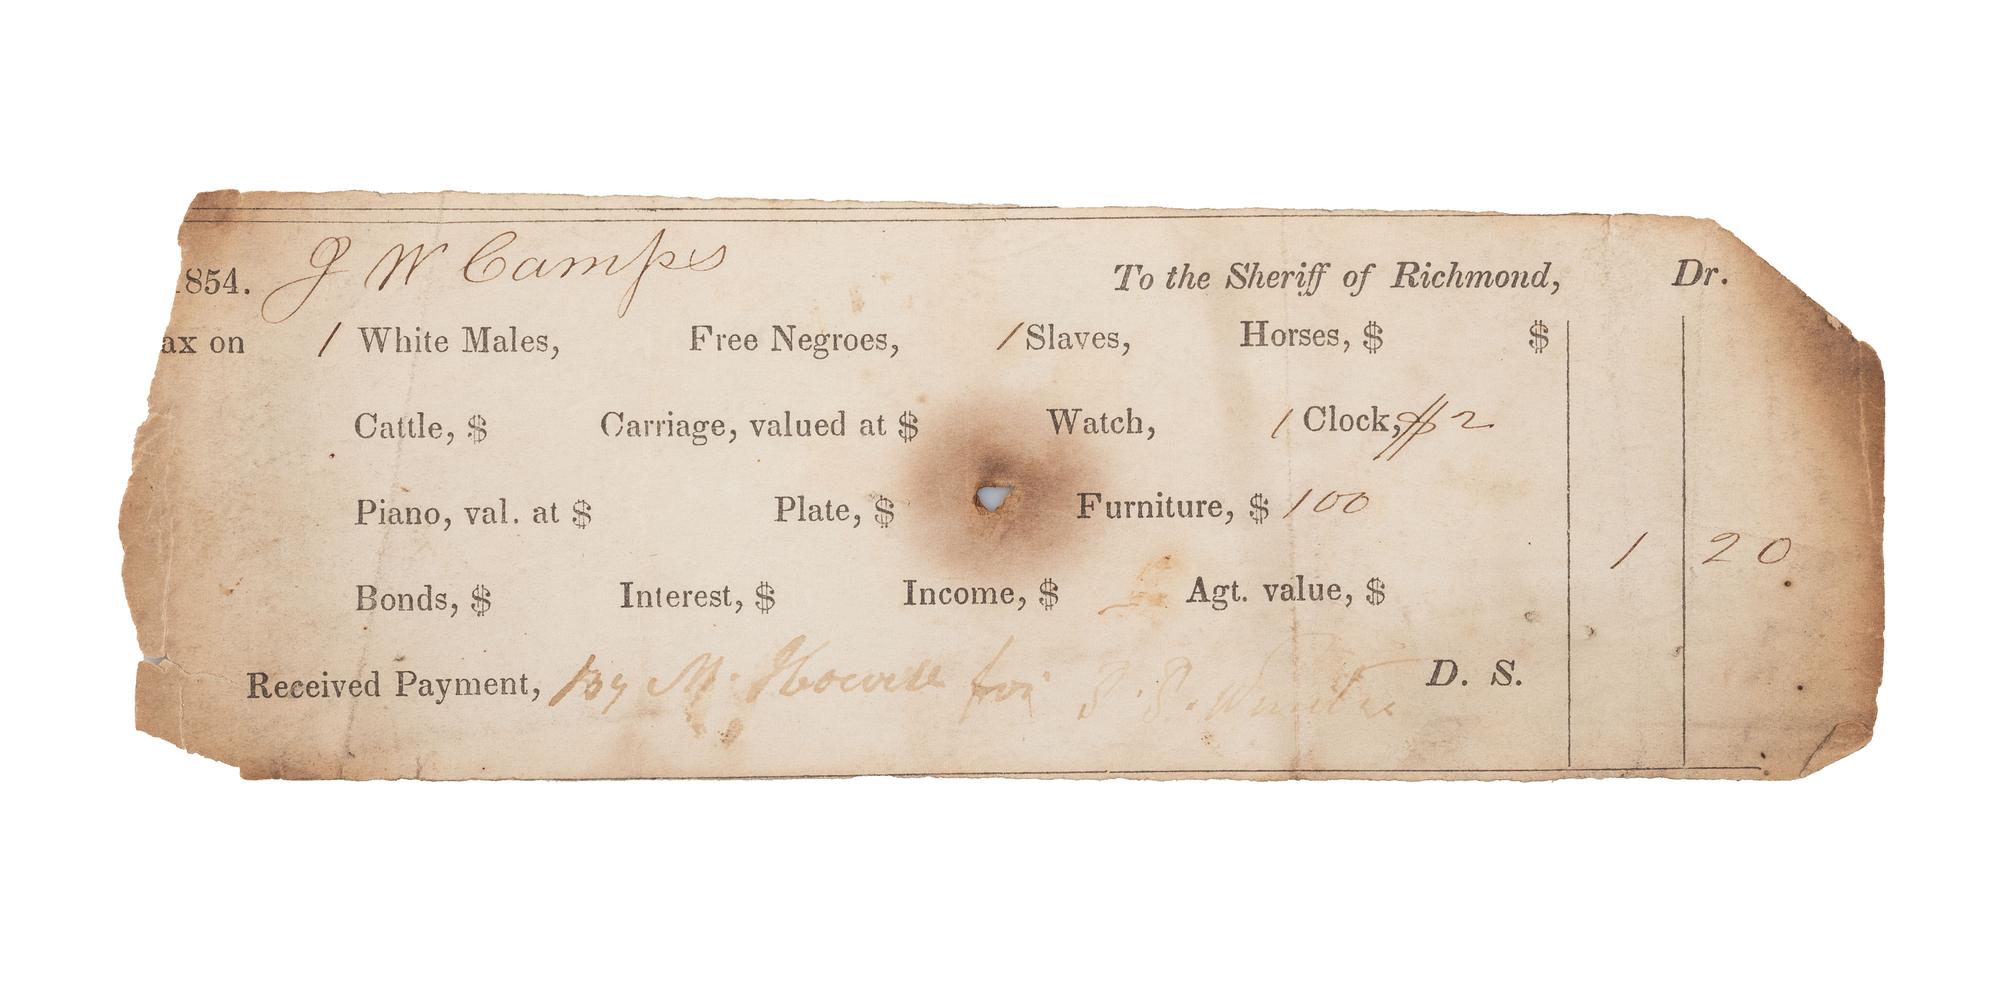 854. J W Camps To the Sheriff of Richmond, Dr.
ax on 1 White Males, Free Negroes, 1 Slaves, Horses, $ $
Cattle, $ Carriage, valued at $ Watch, 1 Clock, $2
Piano, val. at $ Plate, $ Furniture, $ 100
1 20
Bonds, $ Interest, $ Income, $ Agt. value, $
Received Payment, By M. for D. S.